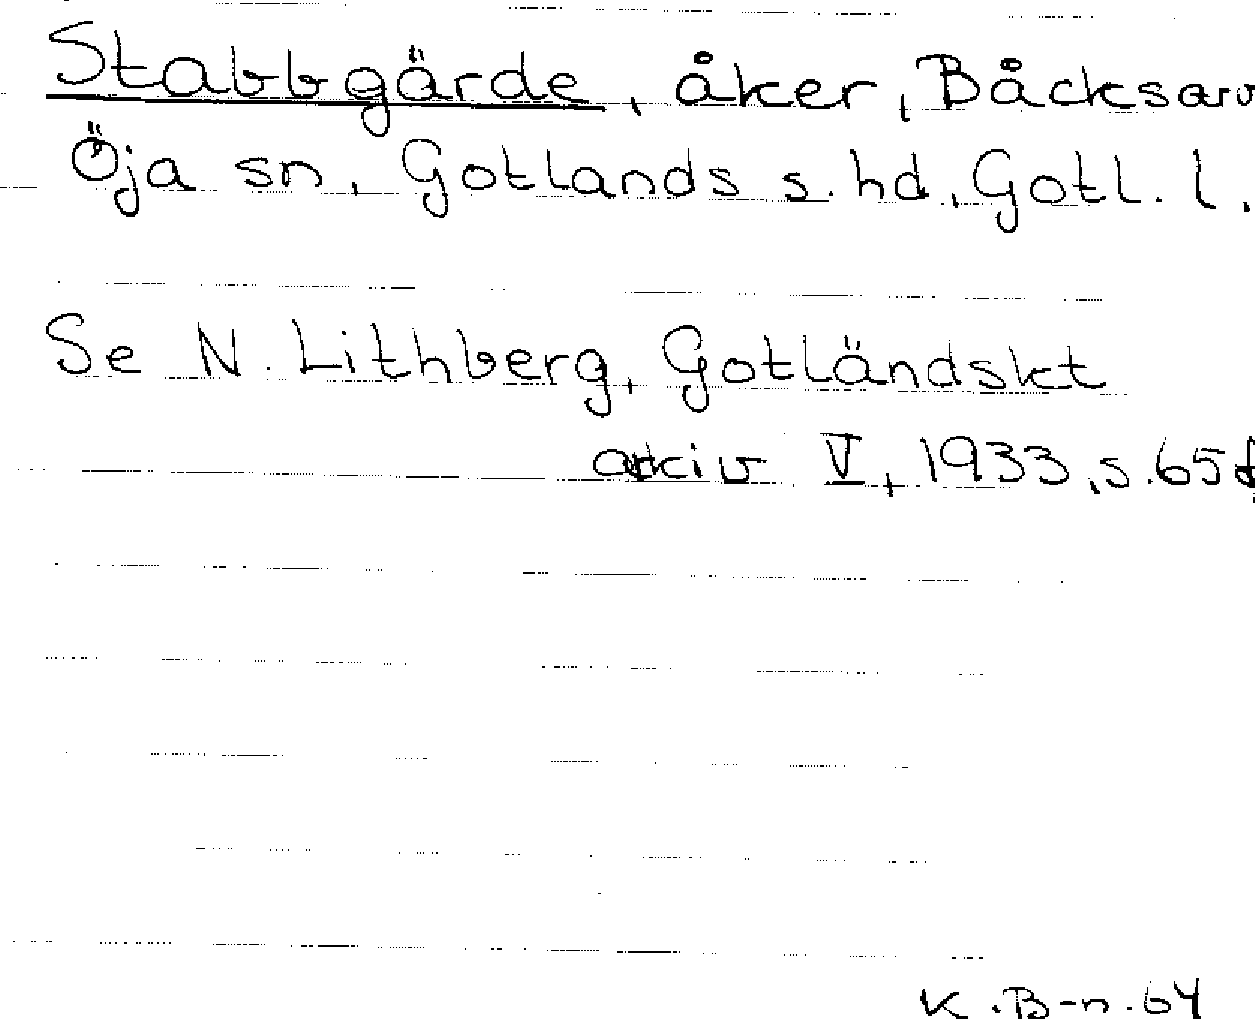 Stabbgärde, åker, Båcksarv
Öja sn, Gotlands s. hd, Gotl. l.
Se N. Lithberg, Gotländskt
arkiv V, 1933, s. 65 f
K. B-n. 64